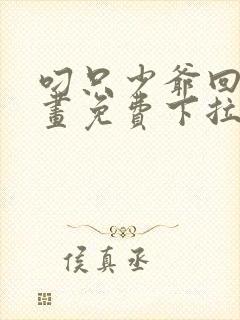 叼只少爷回
畫免費下拉
侯真丞